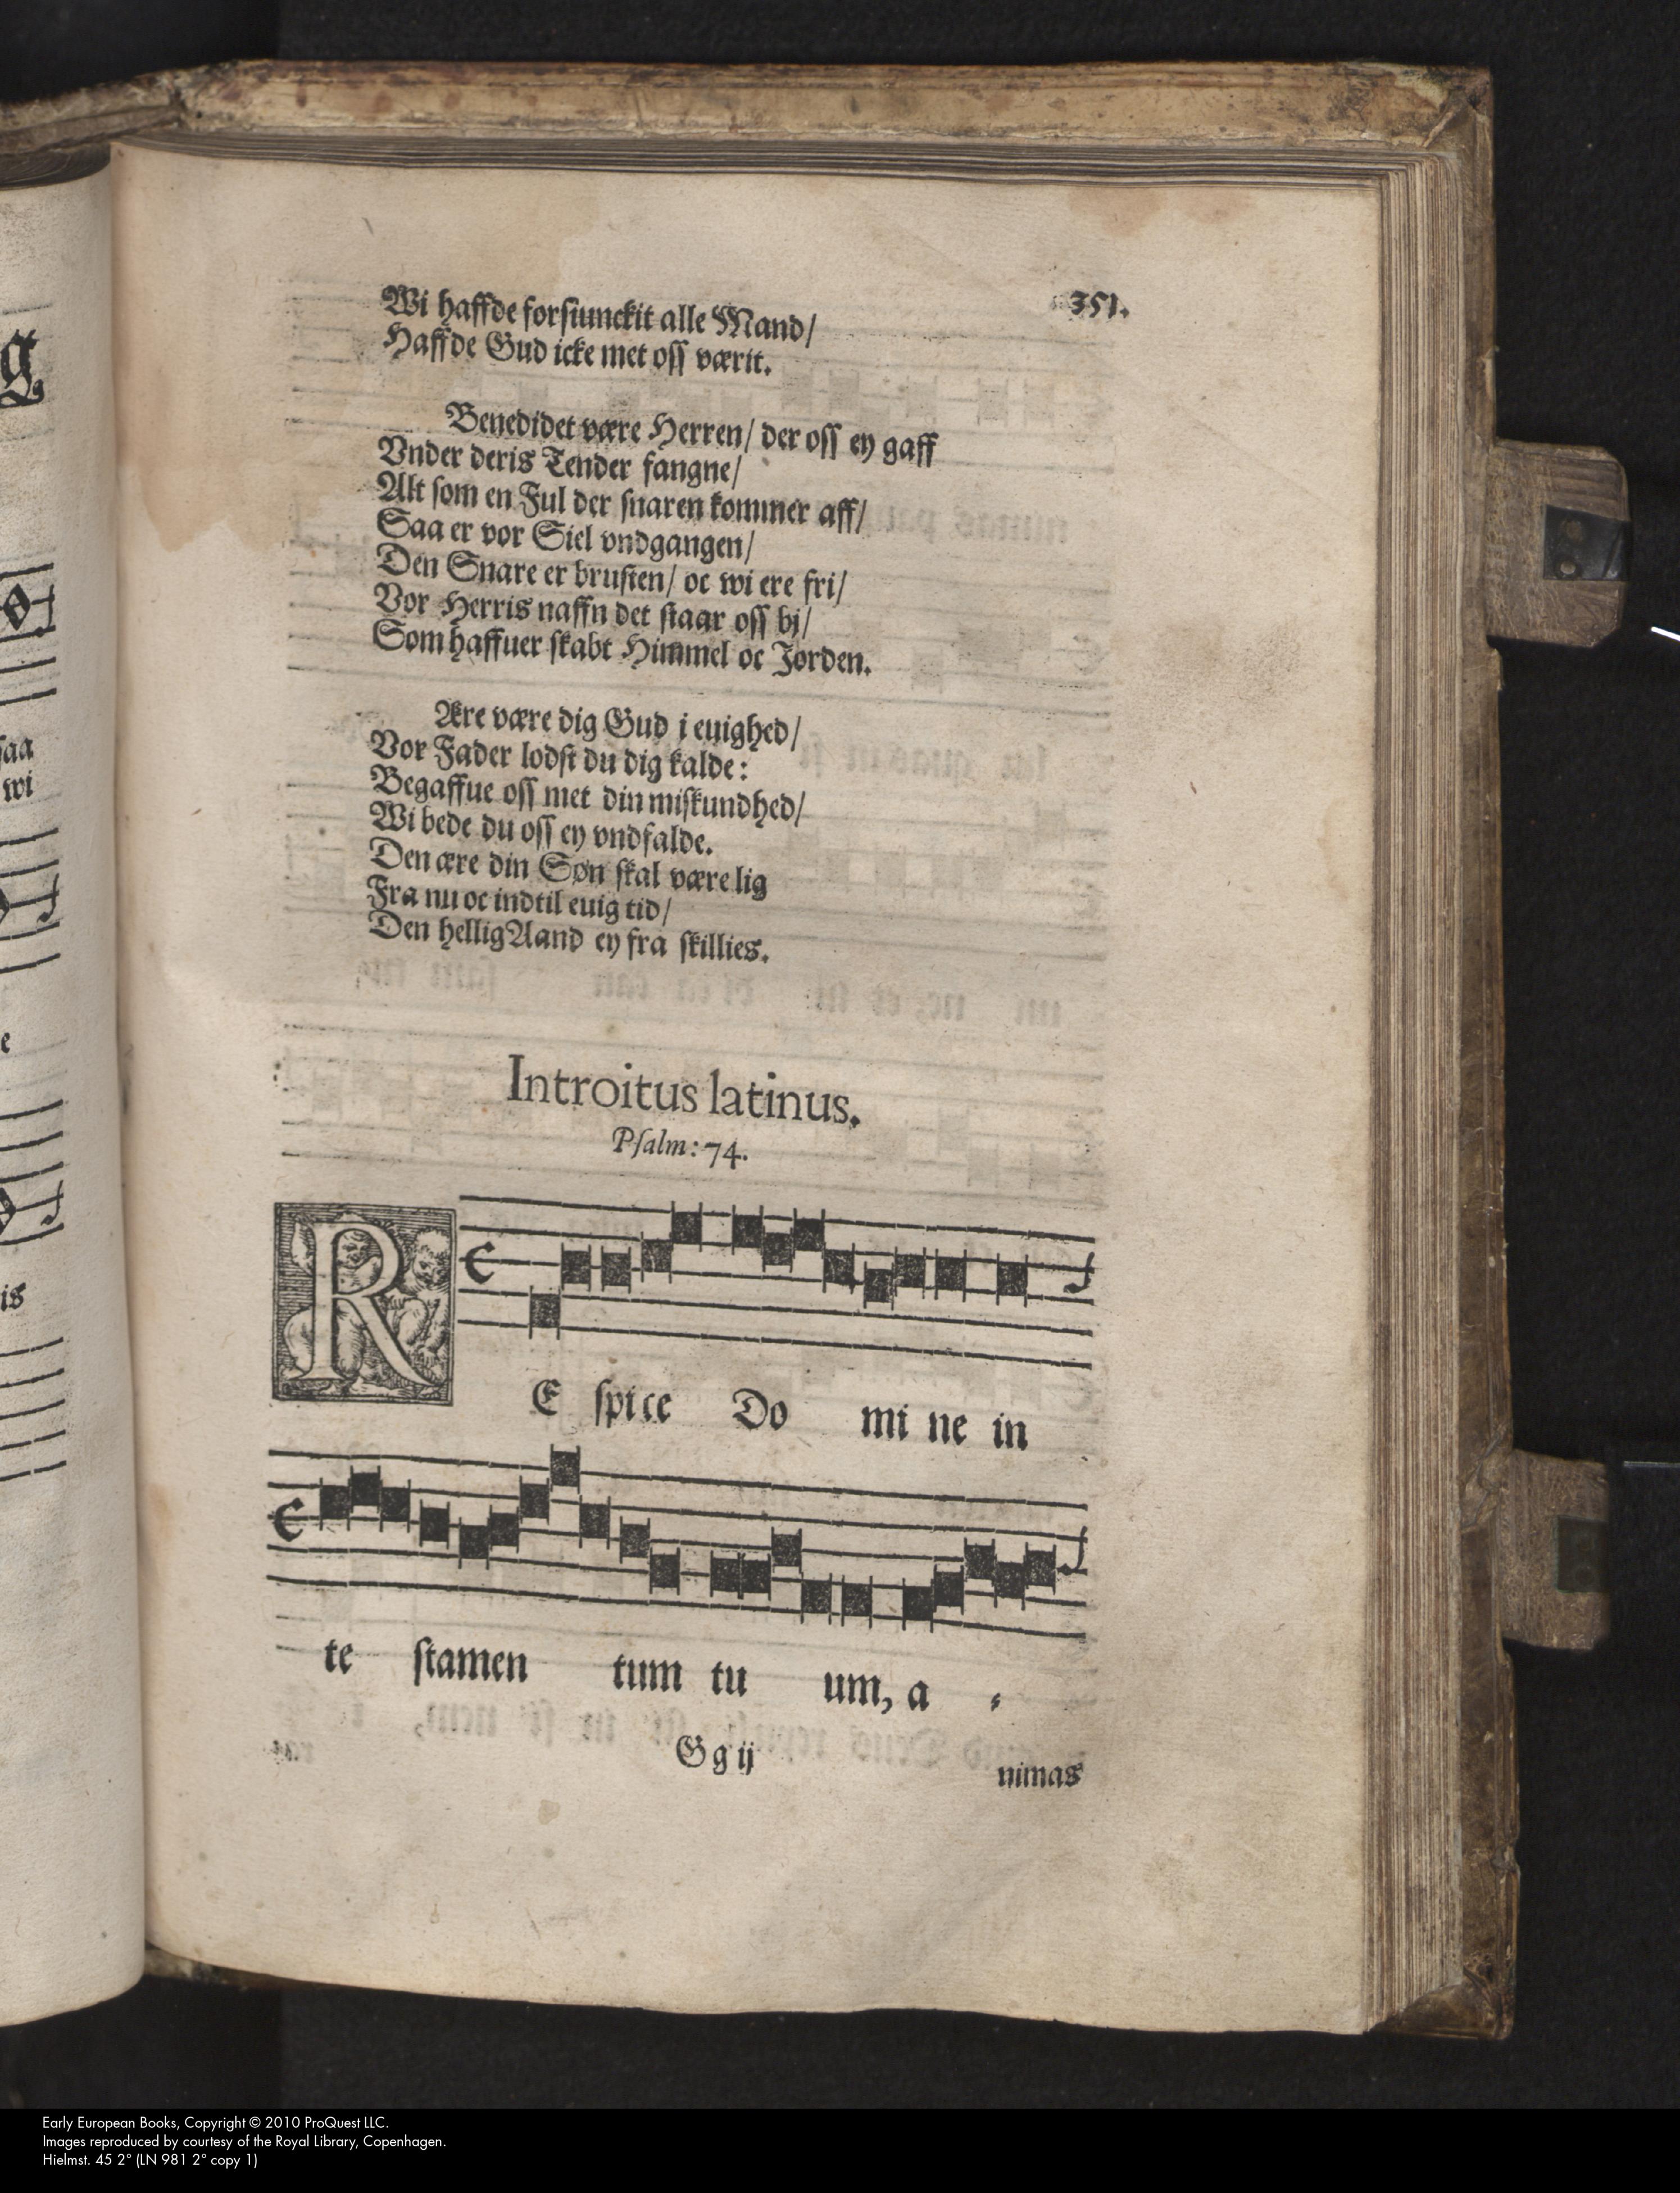 351.
Wi haffde forsiunckit alle Mand/
Haffde Gud icke met oss værit.
Benedidet være Herren/ der oss ey gaff
Vnder deris Tender fangne/
Alt som en Ful der snaren kommer aff/
Saa er vor Siel vndgangen/
Den Snare er brusten/ oc wi ere fri/
Vor Herris naffn det staar oss bj/
Som haffuer skabt Himmel oc Jorden.
Ære være dig Gud i euighed/
Vor Fader lodst du dig kalde:
Begaffue oss met din miskundhed/
Wi bede du oss ey vndfalde.
Den ære din Søn skal være lig
Fra nu oc indtil euig tid/
Den hellig Aand ey fra skillies.
Introitus latinus.
Psalm: 74.
RE spice Do mi ne in
te stamen tum tu um, a -
Gg ij
nimas
g
saa
wi
e
is
Early European Books, Copyright © 2010 ProQuest LLC.
Images reproduced by courtesy of the Royal Library, Copenhagen.
Hielmst. 45 2° (LN 981 2° copy 1)